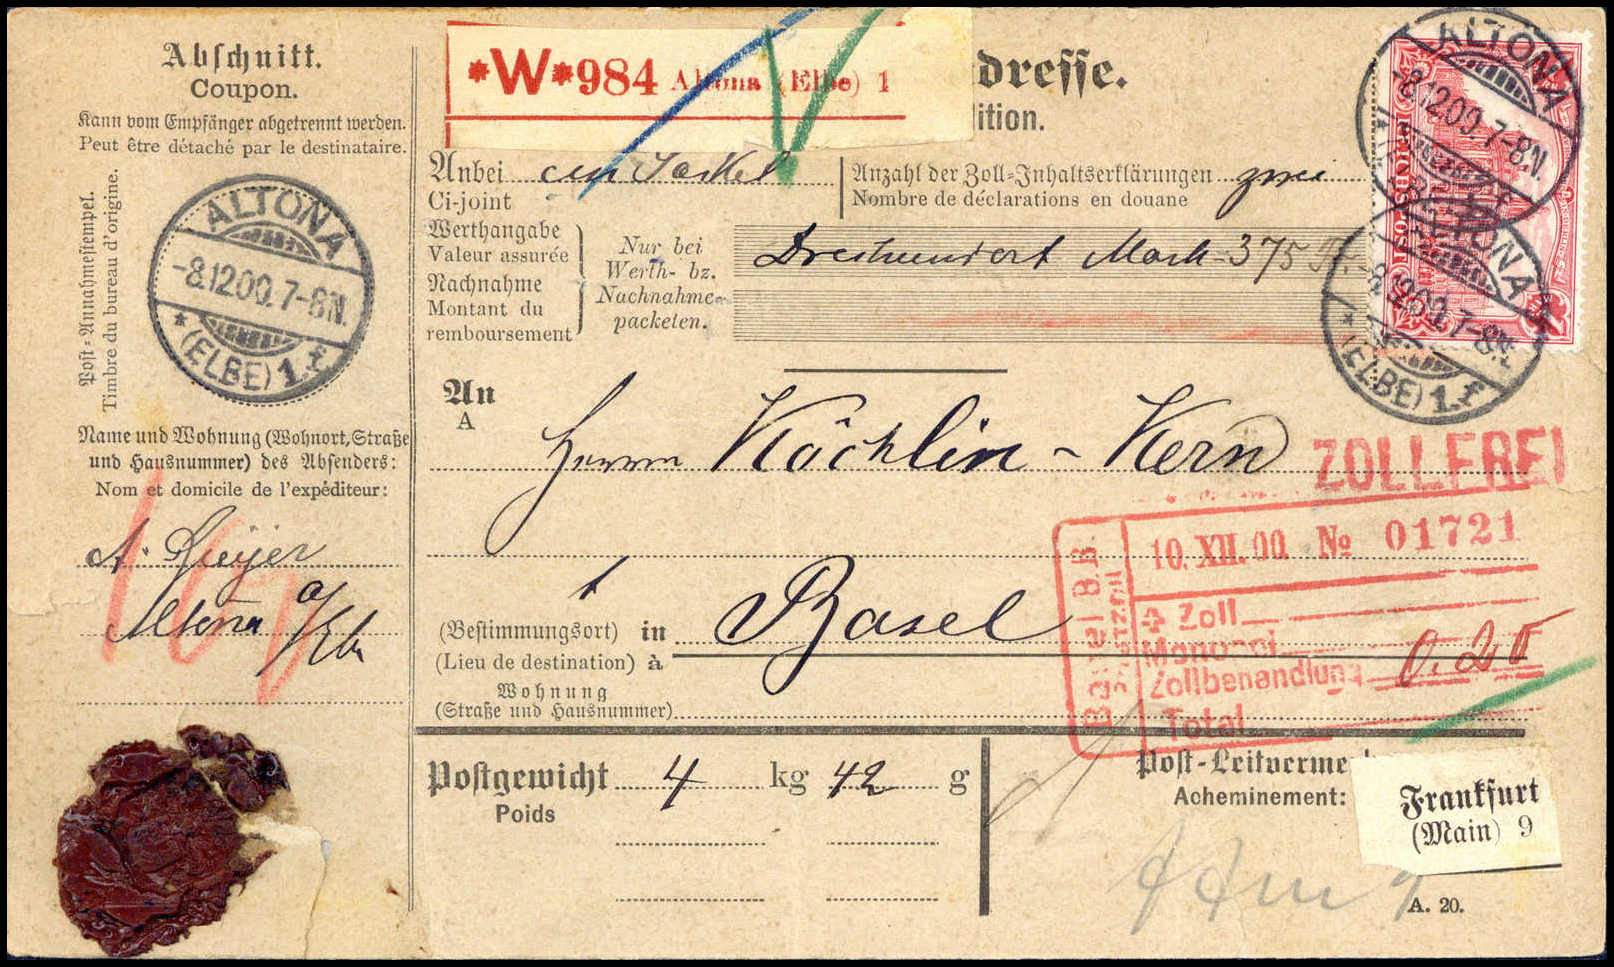 Abschnitt.
Coupon.
Kann vom Empfänger abgetrennt werden.
Peut être détaché par le destinataire.
Post-Annahmestempel.
Timbre du bureau d'origine.
ALTONA
-8.12.00.7-8N.
* (ELBE) 1.f
Name und Wohnung (Wohnort, Straße
und Hausnummer) des Absenders:
Nom et domicile de l'expéditeur:
A.
Altona a/Elbe
*W*984 Altona (Elbe) 1
dresse.
ition.
Anbei ein Packet
Ci-joint
Anzahl der Zoll-Inhaltserklärungen zwei
Nombre de déclarations en douane
Werthangabe
Valeur assurée
Nachnahme
Montant du
remboursement
Nur bei
Werth- bz.
Nachnahme-
packeten.
Dreihundert Mark 375
ALTONA
-8.12.00.7-8N.
REICHSPOST
ALTONA
-8.12.00.7-8N.
* (ELBE) 1.f
An
A
Herrn Köchlin-Kern
ZOLLFREI
Basel B.B.
10. XII. 00 No 01721
Zoll
Monopol
Zollbehandlung 0.20
Total
(Bestimmungsort) in Basel
(Lieu de destination) à
Wohnung
(Straße und Hausnummer)
Postgewicht 4 kg 42 g
Poids
Post-Leitverme
Acheminement:
Frankfurt
(Main) 9
A. 20.